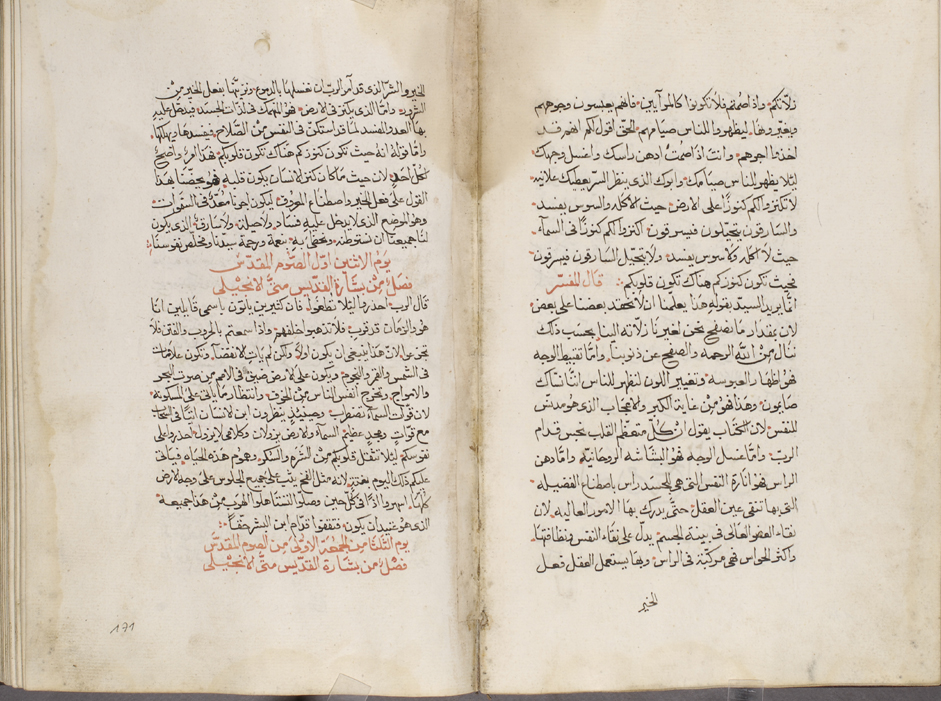 زلاتكم. واذا صمتم فلا تكونوا كالمرآيين. فانهم يعبسون وجوههم
ويغيّرونها. ليظهروا للناس صيامهم. الحقّ اقول لكم انهم قد
اخذوا اجرهم. وانت اذا صمتُ ادهن راسك واغسل وجهك
ليلا يظهر للناس صيامك. وابوك الذي ينظر السر يعطيك علانيه.
لا تكنزوا لكم كنوزًا على الارض. حيث الاكله والسوس يفسد.
والسارقون يتحيّلون فيسرقون. اكنزوا لكم كنوزًا في السمآء.
حيث لا اكله ولا سوس يفسد. ولا يتحيل السارقون فيسرقون.
فحيث تكون كنوزكم هناك تكون قلوبكم. قال المفسّر
انّما يريد السيد بقوله هذا يعلمنا ان لا يحقد بعضنا على بعض
لان بمقدار ما نصفح نحن لغيرنا زلاته الينا. بحسب ذلك
ننال من الله الرحمه والصفح عن ذنوبنا. وامّا تقبيط الوجه
فهو اظهار العبوسه. وتغيير اللون لنظهر للناس اننا نسّاك
صايمون. وهذا فهو من غاية الكبر والاعجاب الذي هو مدنّس
للنفس. لان الكتاب يقول ان كلّ متعظّم القلب نجس قدام
الربّ. وامّا غسل الوجه فهو البشاشه الروحانيّه. وامّا دهن
الراس فهو انارة النفس التي هي للجسد راس باصطناع الفضيله.
التي بها تنقى عين العقل. حتّى يدرك بها الامور العاليه. لان
نقاء العضو العالي في بينة الجسم يدل على نقاء النفس ونظافتها.
واكثر الحواس فهي مركّبة في الراس. وبها يستعمل العقل فعل
الخير
الخير والشرّ الذي قد آمر الربّ ان نغسلها بالدموع. ونزيّنها بفعل الخير من
الشرور. وامّا الذي يكنز في الارض. فهو المنهمك في لذّات الجسد. فيدخل عليه
بها العدو والمفسد لما قد استكنّ في النفس من الصّلاح. فيفسدها ويهلكها.
وامّا قوله انه حيث تكون كنوزكم هناك تكون قلوبكم. فهذا امر واضح
لكلّ احد. لان حيث ما كان كنز الانسان يكون قلبه. فهو يحضّنا بهذا
القول على فعل الخير واصطناع المعروف. ليكون اجرنا معدّ في السموات.
وهو الموضع الذي لا يدخل عليه فساد. ولا حيلة. ولا سارق. الذي يكون
لنا جميعنا ان نستوطنه. ونحظى به. بنعمة ورحمة سيدنا ومخلّص نفوسنا
يوم الاثنين اوّل الصوم المقدّس
فصل من بشارة القدّيس متّى الانجيلي
قال الرب احذروا ليلا تطغوا. فان كثيرين ياتون باسمي قايلين انا
هو والزمان قد قرب. فلا تذهبوا خلفهم. واذا سمعتم بالحروب والفتن فلا
تجزعوا. لان هذا ينبغي ان يكون اولاً. ولكن لم يات الانقضآ. وتكون علامات
في الشمس والقمر والنجوم. ويكون على الارض ضيق في الامم من صوت البحر
والامواج. وتخرج انفس الناس من الخوف. وانتظار ما ياتي على المسكونة.
لان قوّات السمآء تضطرب. وحينئذٍ ينظرون ابن الانسان اتيًا في السّحاب
مع قوّاتٍ ومجدٍ عظيم. السمآء والارض يزولان وكلامي لا يزول. احذروا على
نفوسكم ليلا تثقل قلوبكم من الشّره والسكر. وهموم هذه الحياه. فياتي
عليكم ذلك اليوم بغتة. لانه مثل الفخّ يثب على جميع الجلوس على وجه الارض
كلّها. اسهروا اذًا في كلّ حين وصلّوا لتستاهلوا الهرب من هذا جميعه.
الذي هو عتيد ان يكون. وتقفوا قدّام ابن البشر حقّاً.
يوم الثلثا من الجمعة الاوّلى من الصوم المقدّس
فصل من بشارة القدّيس متّى الانجيلي
171